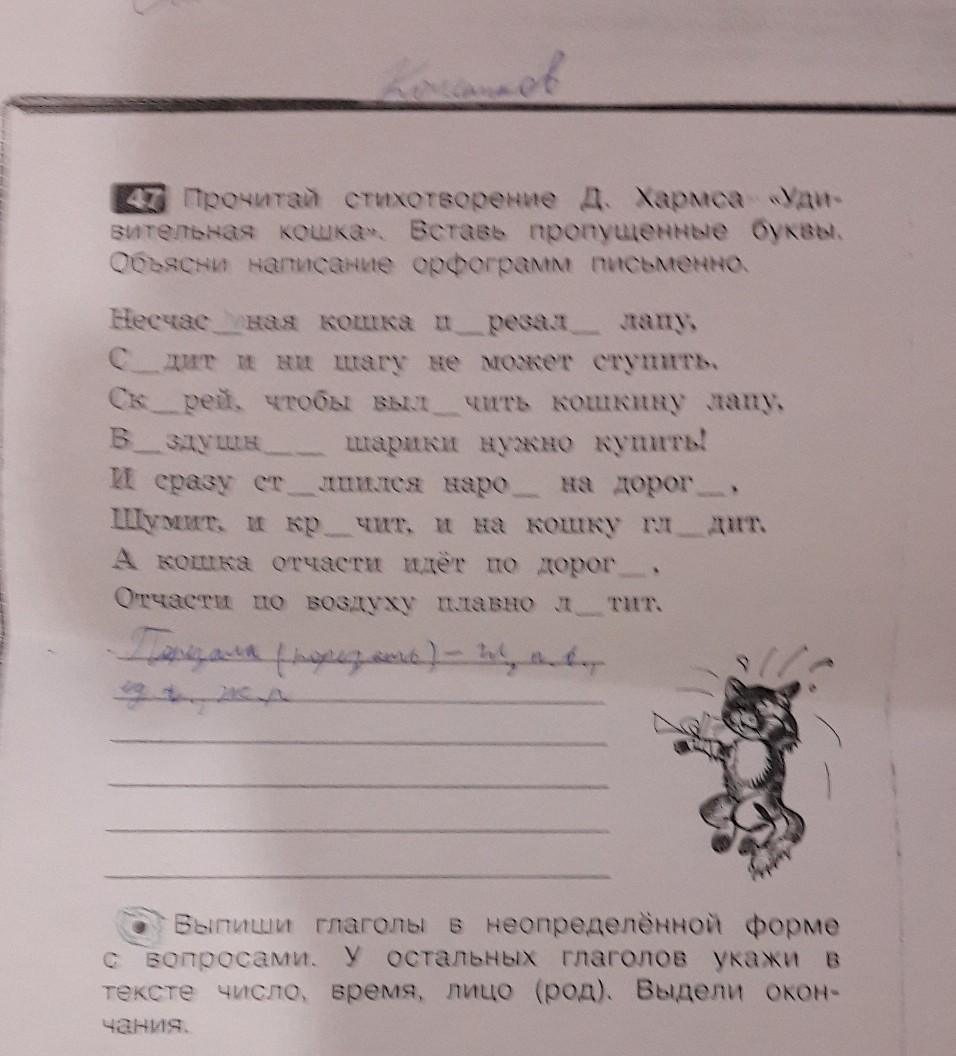 47 Прочитай стихотворение Д. Хармса «Уди-
вительная кошка». Вставь пропущенные буквы.
Объясни написание орфограмм письменно.
Несчас_ная кошка п_резал_ лапу,
С_дит и ни шагу не может ступить.
Ск_рей, чтобы выл_чить кошкину лапу,
В_здушн__ шарики нужно купить!
И сразу ст_лпился наро_ на дорог_,
Шумит, и кр_чит, и на кошку гл_дит.
А кошка отчасти идёт по дорог_,
Отчасти по воздуху плавно л_тит.
(порезать) –
ж.р
Выпиши глаголы в неопределённой форме
с вопросами. У остальных глаголов укажи в
тексте число, время, лицо (род). Выдели окон-
чания.